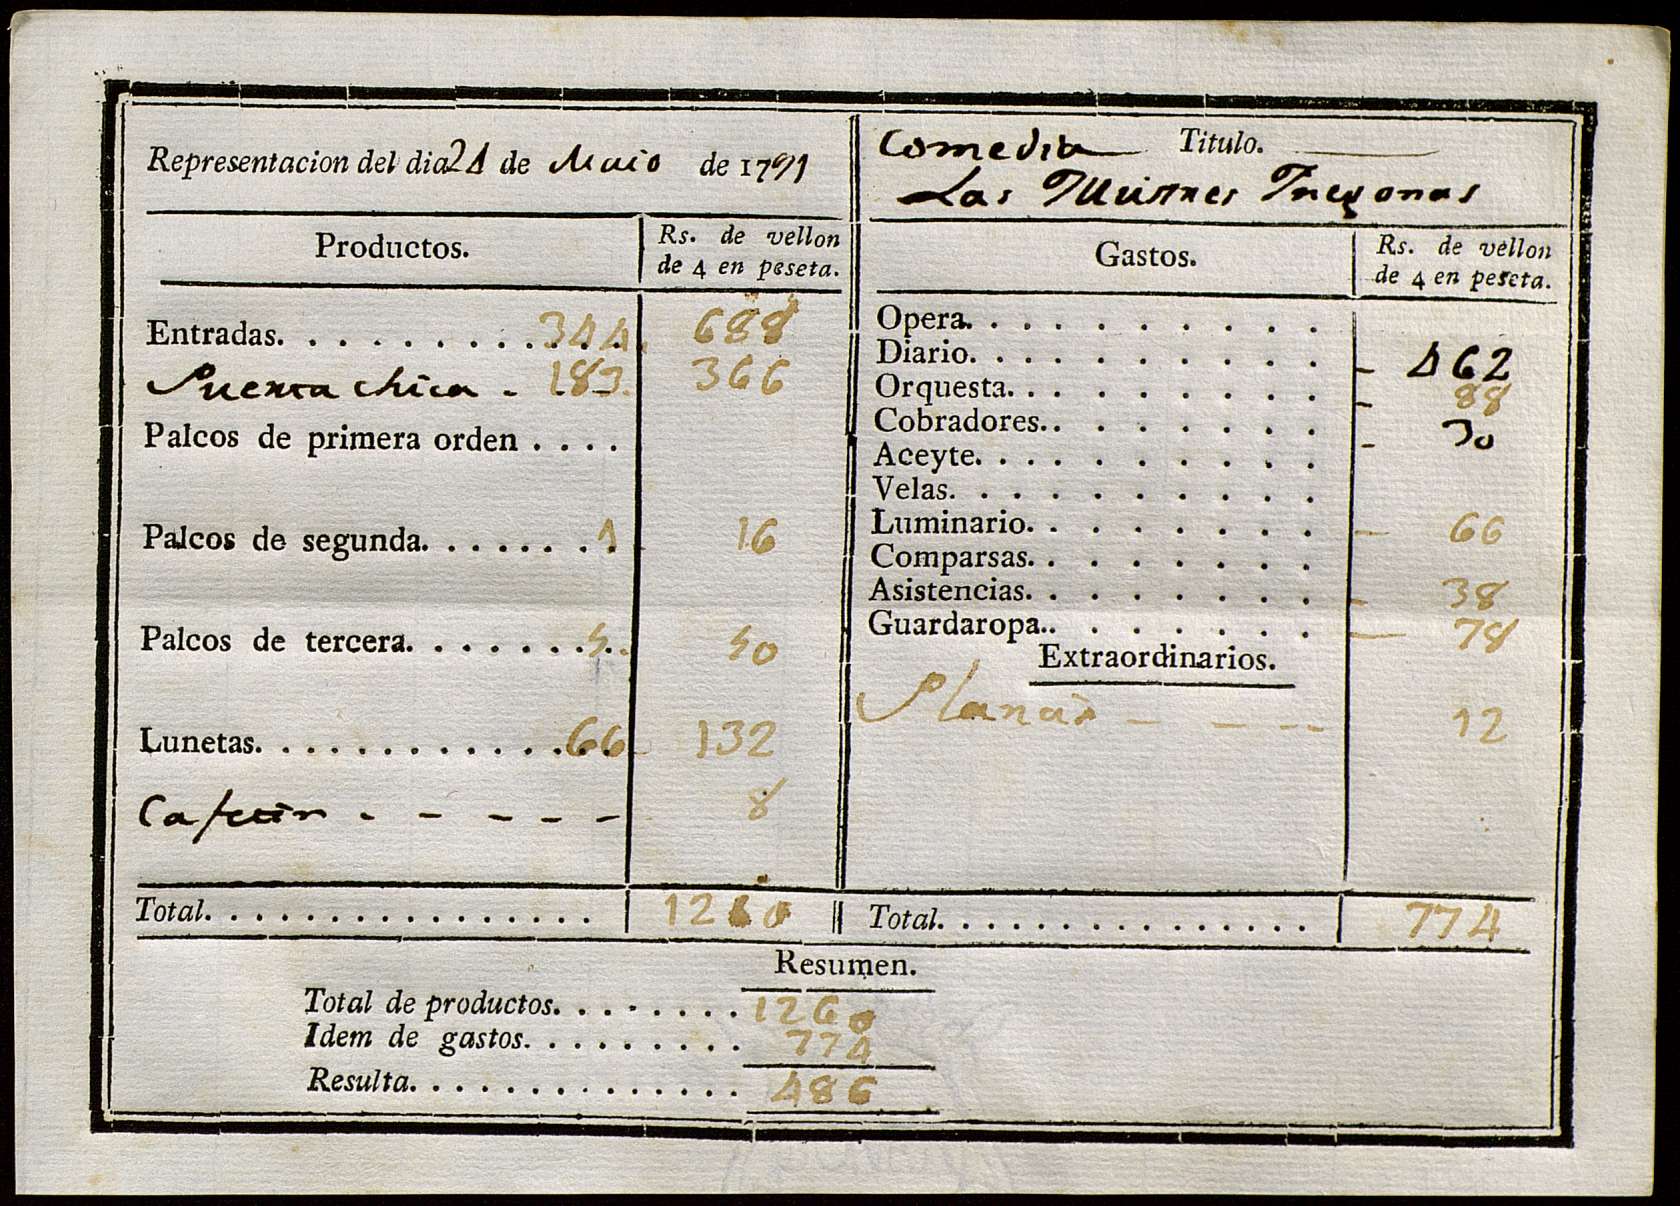 Representacion del dia 24 de Maio de 1791
Comedia Titulo.
Las Illustres Fregonas
Productos. Rs. de vellon de 4 en peseta.
Entradas. . . . . . . . . . . . 344. 688
Puerta chica - 183. 366
Palcos de primera orden . . . .
Palcos de segunda. . . . . . . 1 16
Palcos de tercera. . . . . . . 5. 50
Lunetas. . . . . . . . . . . . . 66 132
Cafetin - - - - - - 8
Total. . . . . . . . . . . . . . . . . 1260
Gastos. Rs. de vellon de 4 en peseta.
Opera. . . . . . . . . .
Diario. . . . . . . . . . - 462
Orquesta. . . . . . . . . - 88
Cobradores. . . . . . . . - 30
Aceyte. . . . . . . . . .
Velas. . . . . . . . . .
Luminario. . . . . . . . - 66
Comparsas. . . . . . . .
Asistencias. . . . . . . . - 38
Guardaropa. . . . . . . . - 78
Extraordinarios.
Planas - - - - 12
Total. . . . . . . . . . . . . . . . 774
Resumen.
Total de productos. . . . . . . . 1260
Idem de gastos. . . . . . . . . 774
Resulta. . . . . . . . . . . . . . 486